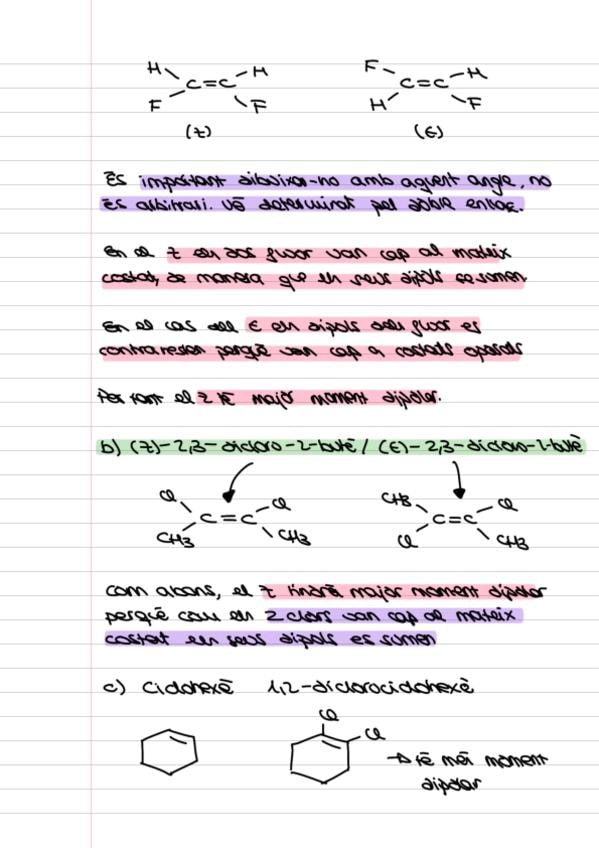 H H F H
C=C C=C
F F H F
(Z) (E)
És important dibuixar-ho amb aquest angle, no
és arbitrari. Vé determinat pel doble enllaç.
En el Z els dos fluor van cap al mateix
costat, de manera que els seus dipòls se sumen.
En el cas del E els dipols dels fluor es
contraresten perquè van cap a costats oposats
Per tant el Z té major moment dipolar.
b) (Z)-2,3-dicloro-2-butè / (E)-2,3-dicloro-2-butè
Cl Cl CH3 Cl
C=C C=C
CH3 CH3 Cl CH3
Com abans, el Z tindrà major moment dipolar
perquè com els 2 clors van cap al mateix
costat els seus dipols es sumen
c) Ciclohexè 1,2-diclorociclohexè
Cl
Cl
té més moment
dipolar